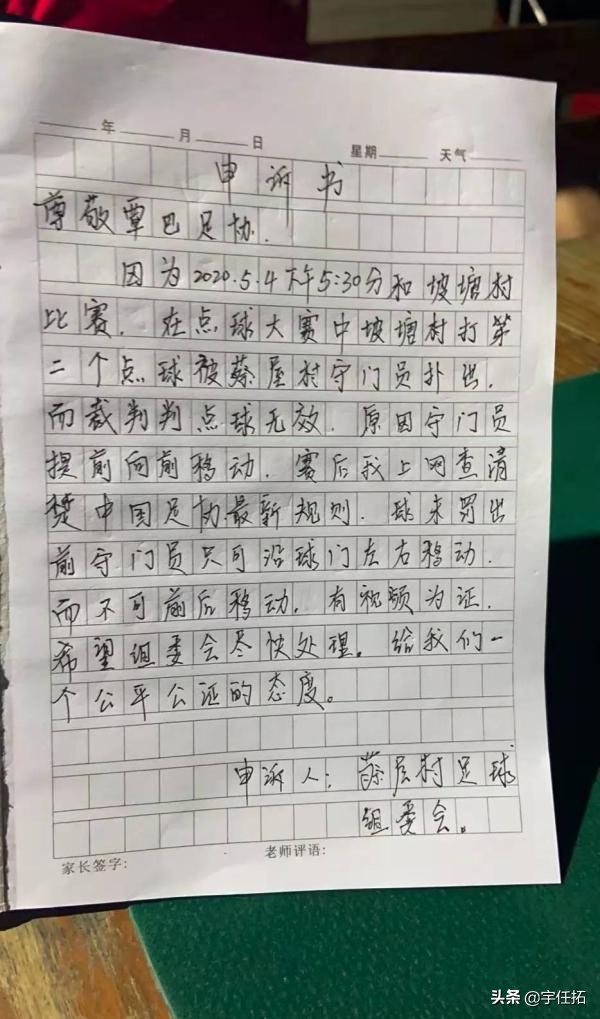 年 月 日 星期 天气
申诉书
尊敬覃巴足协.
因为2020.5.4下午5:30分和坡塘村
比赛. 在点球大赛中坡塘村打第
二个点球被蔡屋村守门员扑出.
而裁判判点球无效. 原因守门员
提前向前移动. 赛后我上网查清
楚中国足协最新规则. 球未罚出
前守门员只可沿球门左右移动.
而不可前后移动. 有视频为证.
希望组委会尽快处理。给我们一
个公平公证的态度。
申诉人: 蔡屋村足球
组委会。
家长签字: 老师评语:
头条 @宇任拓